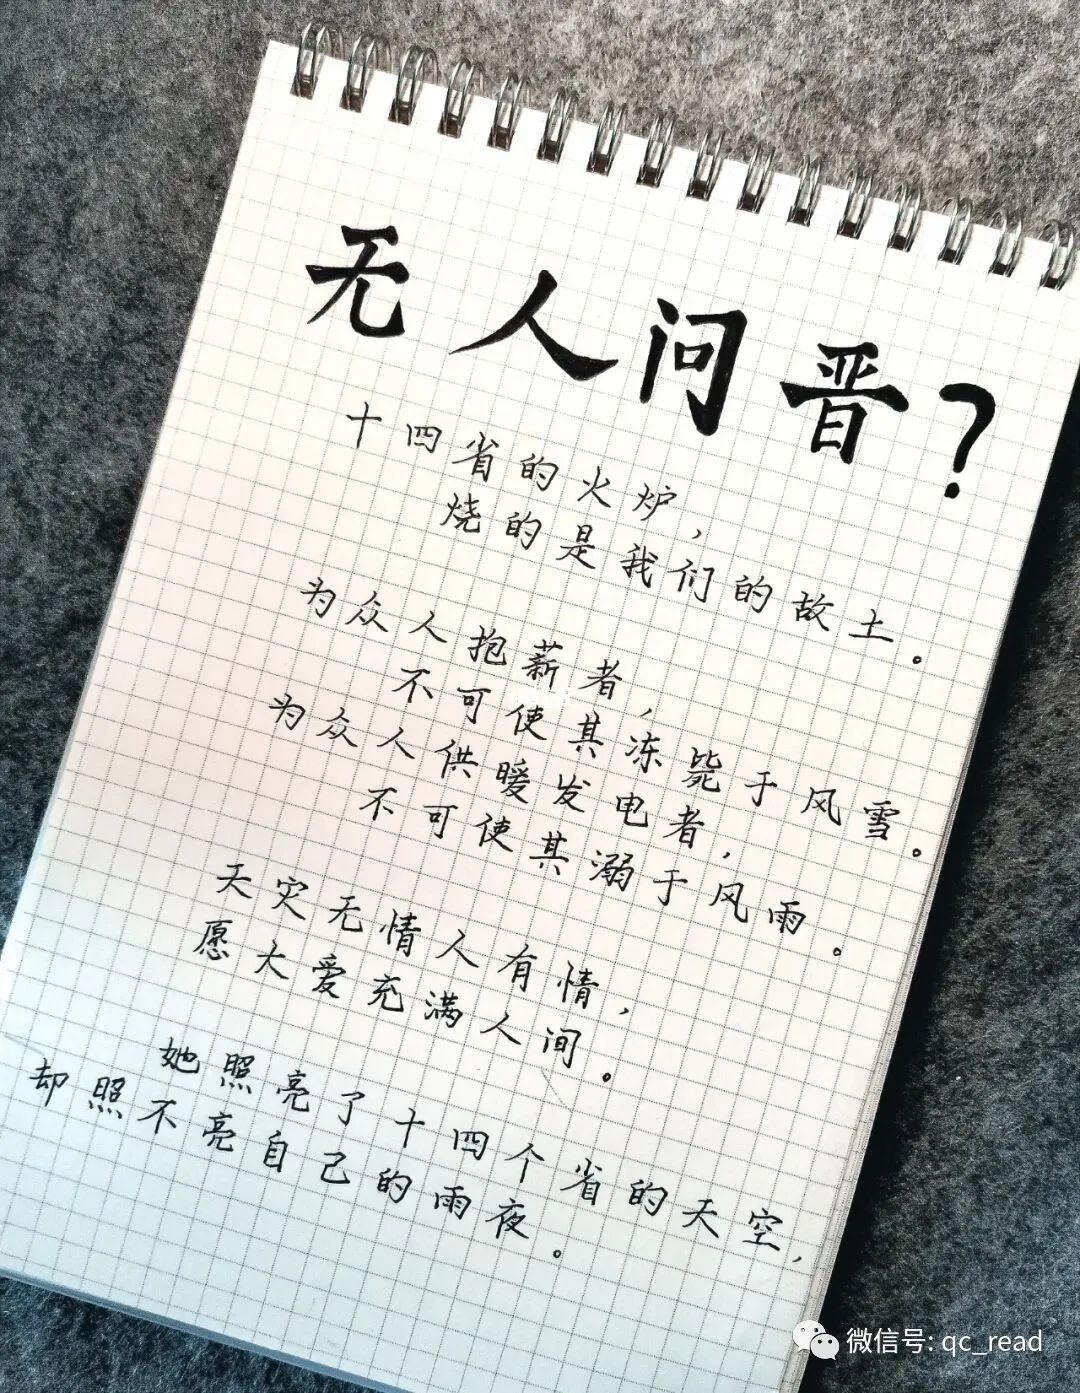 无人问晋?
十四省的火炉,
烧的是我们的故土。
为众人抱薪者,
不可使其冻毙于风雪。
为众人供暖发电者,
不可使其溺于风雨。
天灾无情人有情,
愿大爱充满人间。
她照亮了十四个省的天空,
却照不亮自己的雨夜。
微信号: qc_read